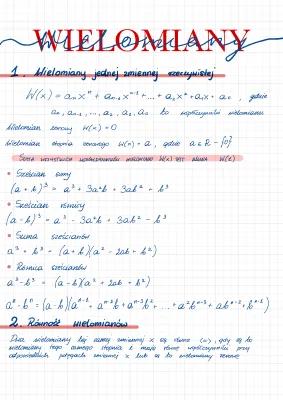 WIELOMIANY
1. Wielomiany jednej zmiennej rzeczywistej
W(x) = aₙxⁿ + aₙ₋₁xⁿ⁻¹ + ... + a₂x² + a₁x + a₀, gdzie
aₙ, aₙ₋₁, ..., a₂, a₁, a₀ to współczynniki wielomianu
Wielomian zerowy W(x) = 0
Wielomian stopnia zerowego W(x) = a, gdzie a ∈ R - {0}
Suma wszystkich współczynników wielomianu W(x) jest równa W(1)
• Sześcian sumy
(a + b)³ = a³ + 3a²b + 3ab² + b³
• Sześcian różnicy
(a - b)³ = a³ - 3a²b + 3ab² - b³
• Suma sześcianów
a³ + b³ = (a + b)(a² - ab + b²)
• Różnica sześcianów
a³ - b³ = (a - b)(a² + ab + b²)
aⁿ - bⁿ = (a - b)(aⁿ⁻¹ + aⁿ⁻²b + aⁿ⁻³b² + ... + a²bⁿ⁻³ + abⁿ⁻² + bⁿ⁻¹)
2. Równość wielomianów
Dwa wielomiany tej samej zmiennej x są równe, gdy są to
wielomiany tego samego stopnia i mają równe współczynniki przy
odpowiednich potęgach zmiennej x lub są to wielomiany zerowe